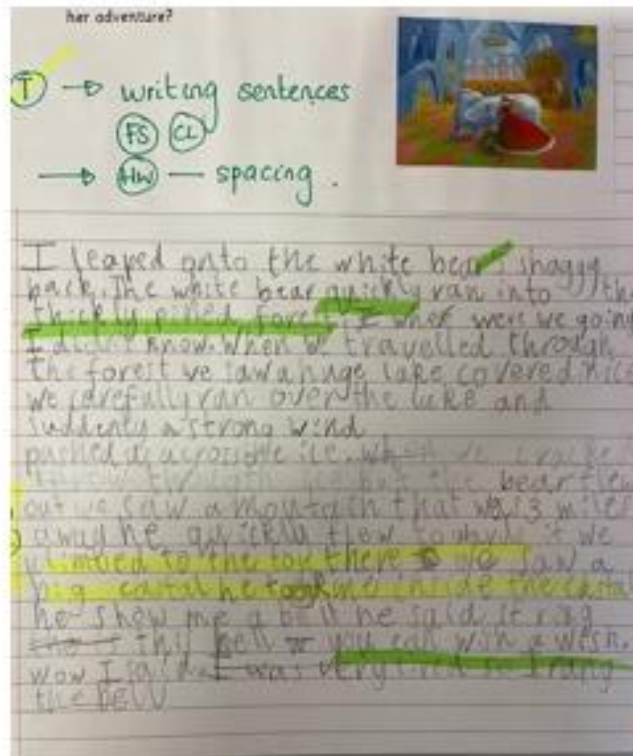 her adventure?
T → writing sentences
FS CL
→ HW — spacing.
I leaped onto the white bear's shaggy
back. The white bear quickly ran into the
thickly pined forest, wher were we going
I didn't know. When we travelled through
the forest we saw a huge lake covered n ice
we carefully ran over the lake and
suddenly a strong wind
pushed us across the ice. when we
through but the bear flew
out we saw a mountain that was 3 miles
away he quickly flow towards it we
climbed to the top there we saw a
big castal he took me inside the castal
he show me a bell he said it rag
this bell you can wish a wish.
wow I said. I was very tired so I rang
the bell